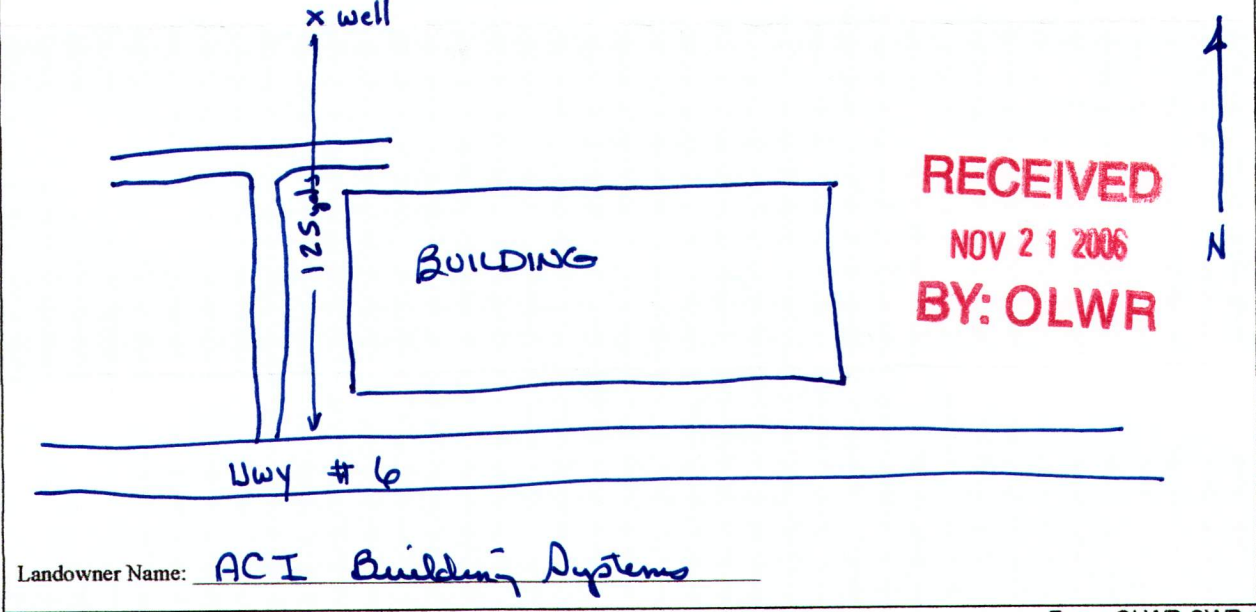 x well
125 yds
BUILDING
RECEIVED
NOV 21 2006
BY: OLWR
N
Hwy # 6
Landowner Name: ACI Building Systems